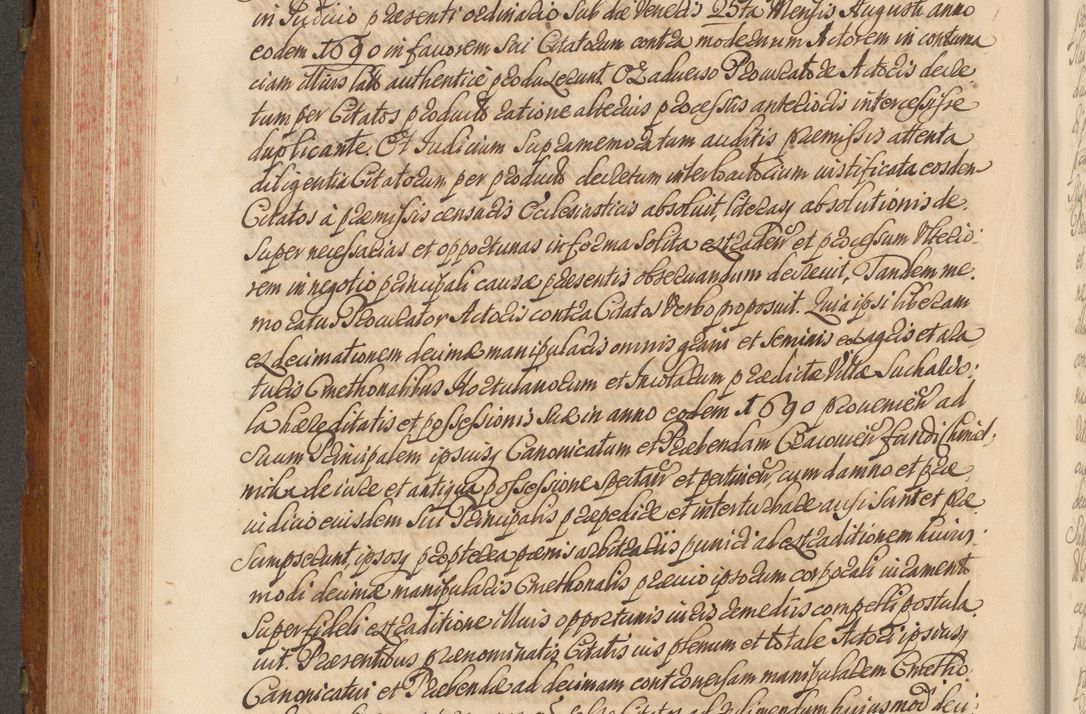 in Judicio præsenti ordinario sub die Veneris 25ta Mensis Augusti anno
eodem 1690 in favorem sui Citatorum contra modernum Actorem in contuma
ciam illius lato authentice produxerunt. Et adverso Procuratore Actoris decre
tum per Citatos productum ratione alterius processus anterioris intercessisse
duplicante. Et Judicium supramemoratum auditis præmissis attenta
diligentia Citatorum per productum decretum interlocutorium justificata eosdem
Citatos à præmissis censuris Ecclesiasticis absolvit, literasq absolutionis de:
super necessarias et opportunas in forma solita extradere et processum Ulterio:
rem in negotio principali causæ præsentis observandum decrevit. Tandem me:
moratus Procurator Actoris contra Citatos Verbo proposuit. Quia ipsi liberam
exdecimationem decimæ manipularis omnis grani et seminis ex agris et ara
turis Cmethonalibus Hortulanorum et Incolarum prædictæ Villæ Suchawo:
la hæreditatis et possessionis suæ in anno eodem 1690 provenien ad
suum Principalem ipsiusq Canonicatum et Præbendam Cracovien fundi Chmiel:
nik de jure et antiqua possessione spectan et pertinen, cum damno et præ
judicio eiusdem sui Principalis præpedire et inturbare ausi sunt et præ
sumpserunt, ipsosq propterea pœnis arbitrariis puniri ad extraditionem hujus:
modi decimæ manipularis Cmethonalis prævio ipsorum corporali juramento
super fideli extraditione illius opportunis juris remediis compelli postula
vit. Præsentibus prænominatis Citatis jus plenum et totale Actori ipsiusq
Canonicatui et Præbendæ ad decimam controversam manipularem Cmetho: